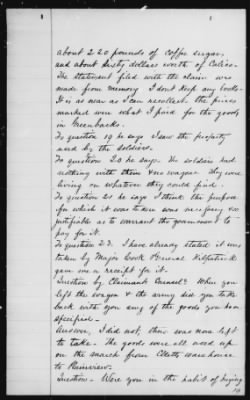 about 220 pounds of coffee sugar.
and about sixty dollars worth of Calico.
The statement filed with the claim was
made from memory I dont keep any books.
It is as near as I can recollect. the prices
marked were what I paid for the goods
in Greenbacks.
To question 19 he says I saw the property
used by the soldiers.
To question 20 he says. The soldiers had
nothing with them & no wagons. They were
living on whatever they could find.
To question 21 he says I think the purpose
for which it was taken was necessary &
justifiable as to warrant the government to
pay for it.
To question 23. I have already stated it was
taken by Major Cook & General Kilpatrick
gave me a receipt for it.
Question by Claimants Counsel? When you
left the wagon & the army did you take
back with you any of the goods you have
specified.
Answer, I did not, there was none left
to take. The goods were all used up
on the march from warehouse
to
Question - Were you in the habit of buying